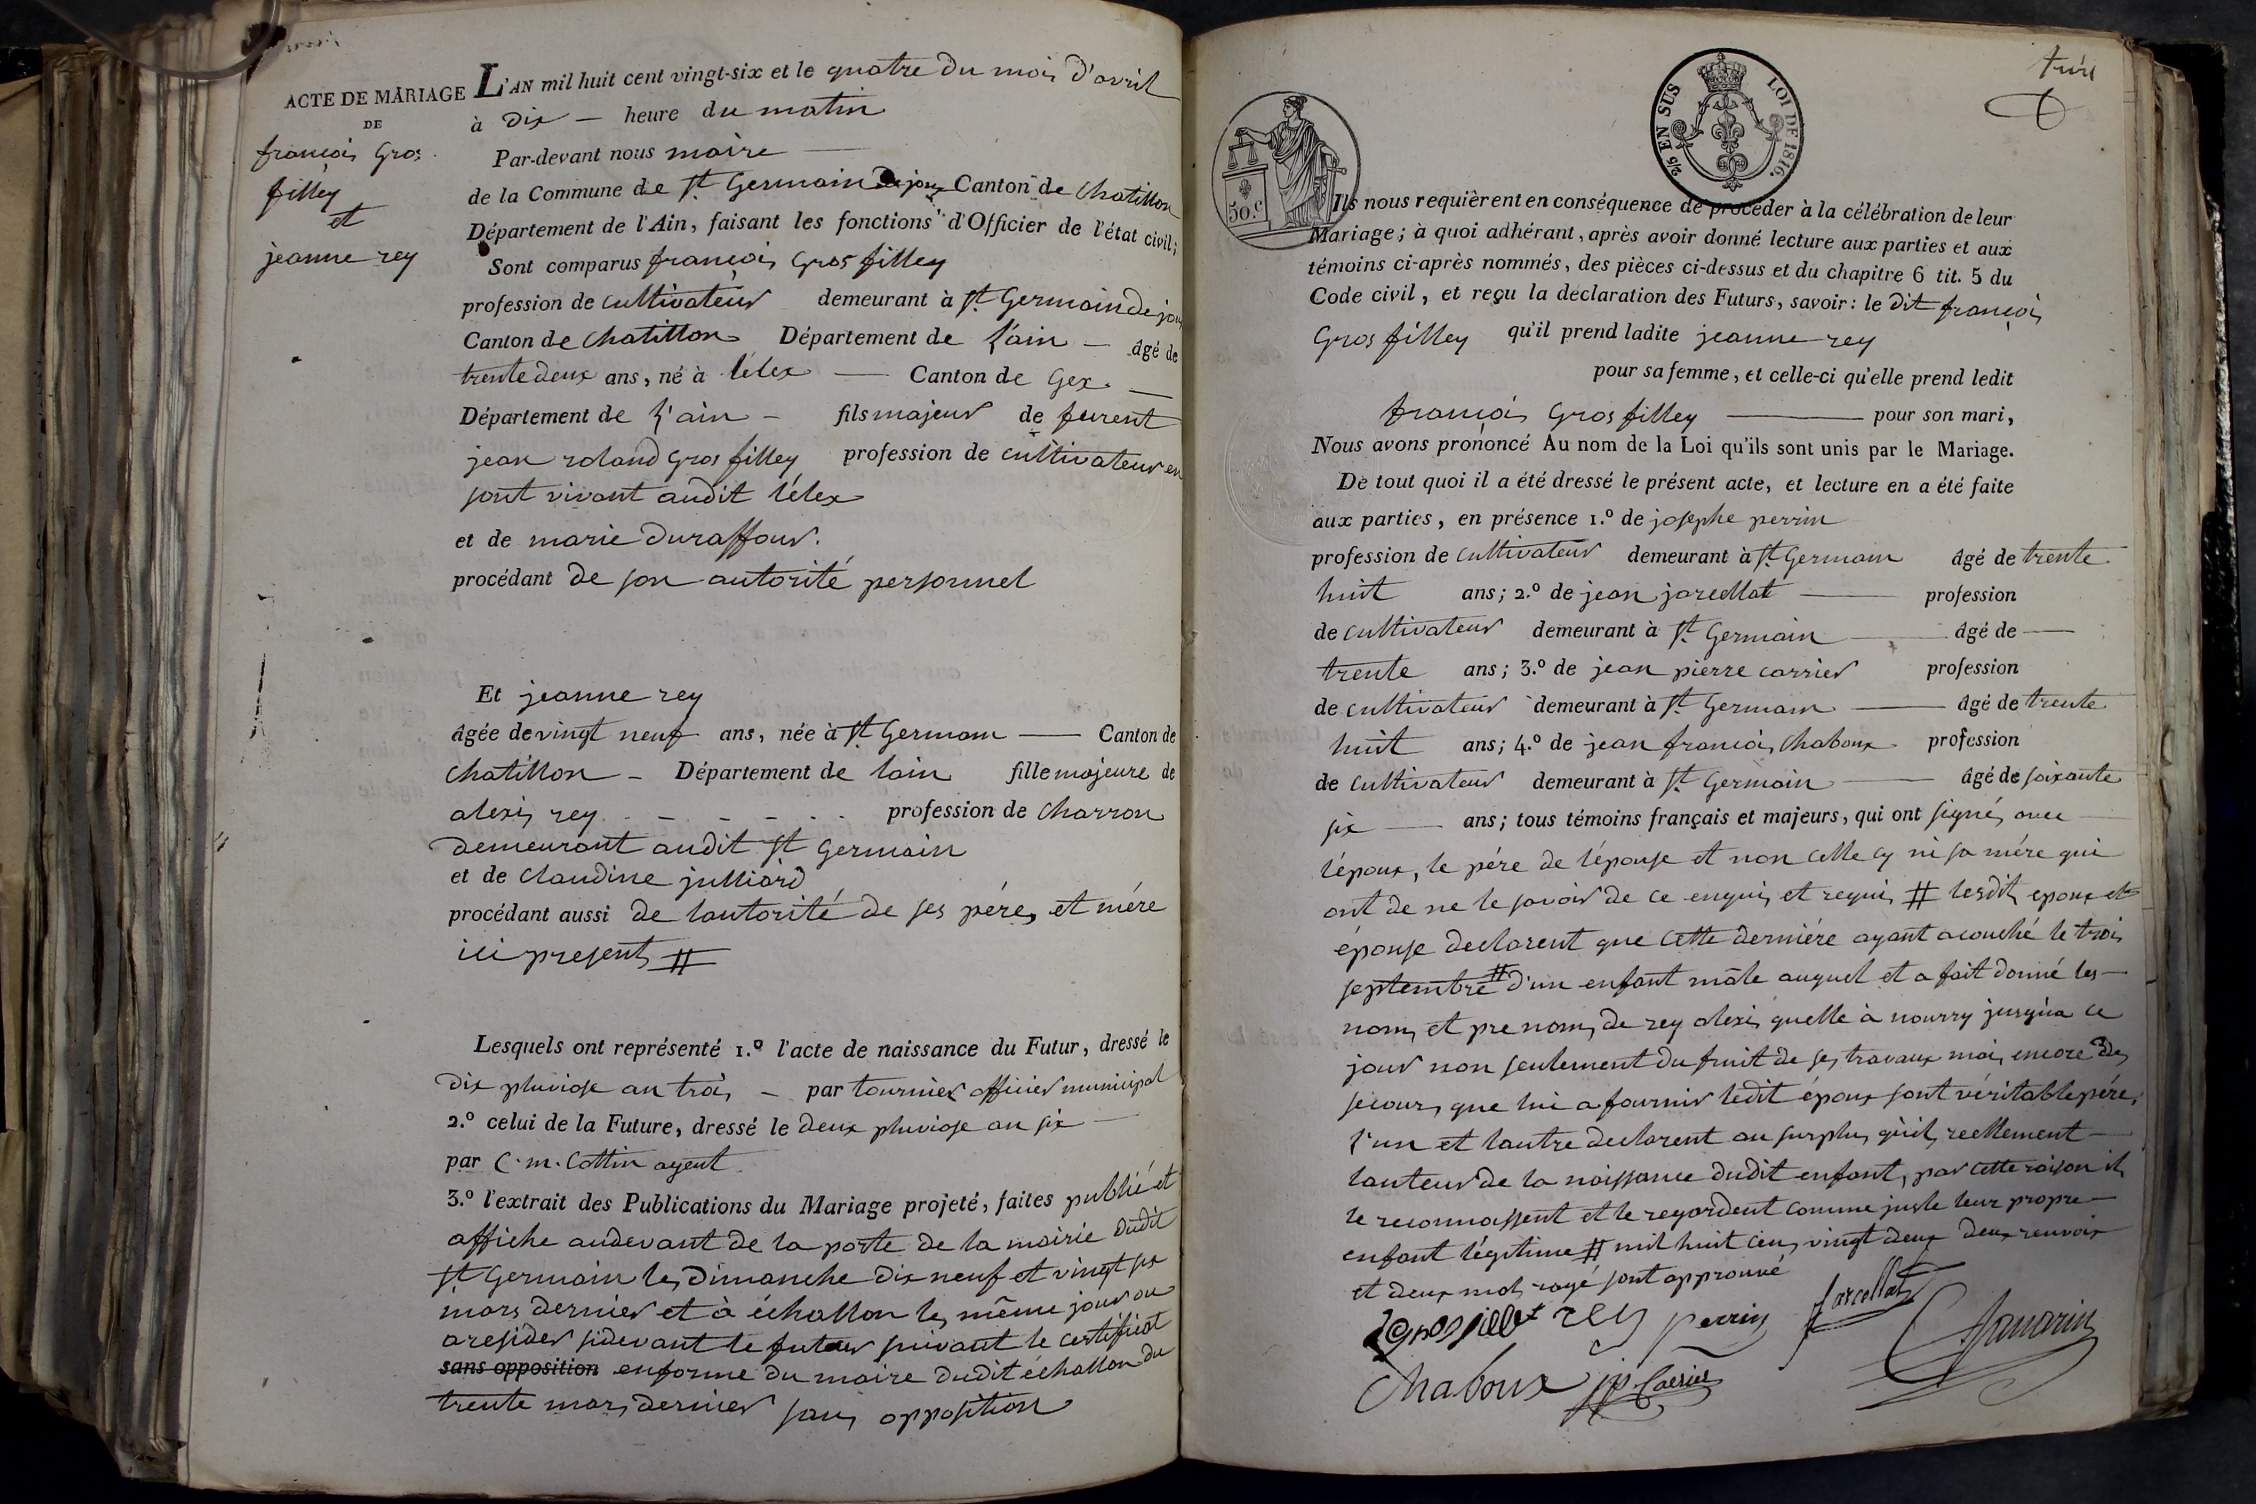 ACTE DE MARIAGE
DE
françois Gros
filley
et
jeanne rey
L'AN mil huit cent vingt-six et le quatre du mois d'avril
à dix — heure du matin
Par-devant nous maire —
de la Commune de St Germain de joux Canton de Chatillon
Département de l'Ain, faisant les fonctions d'Officier de l'état civil;
Sont comparus françois Gros filley
profession de cultivateur demeurant à St Germain de joux
Canton de Chatillon Département de l'ain — âgé de
trente deux ans, né à lélex — Canton de Gex —
Département de l'ain — fils majeur de furent
jean roland Gros filley profession de cultivateur en
sont vivant audit lélex
et de marie duraffour.
procédant de son autorité personnel
Et jeanne rey
âgée de vingt neuf ans, née à St Germain — Canton de
Chatillon — Département de lain fille majeure de
alexis rey profession de Charron
demeurant audit St Germain
et de Claudine julliard
procédant aussi de lautorité de ses pére, et mére
ici present #
Lesquels ont représenté 1.º l'acte de naissance du Futur, dressé le
dix pluviose an trois — par tournier officier municipal
2.º celui de la Future, dressé le deux pluviose an six —
par C. m. Cottin agent
3.º l'extrait des Publications du Mariage projeté, faites publié et
affiche audevant de la porte de la mairie dudit
St Germain les dimanche dix neuf et vingt six
mars dernier et à échallon les même jour ou
a resider sidevant le futur suivant le certificat
sans opposition en forme du maire dudit échallon du
trente mars dernier sans opposition
2/5 EN SUS LOI DE 1816.
50.c
Ils nous requièrent en conséquence de procéder à la célébration de leur
Mariage; à quoi adhérant, après avoir donné lecture aux parties et aux
témoins ci-après nommés, des pièces ci-dessus et du chapitre 6 tit. 5 du
Code civil, et reçu la déclaration des Futurs, savoir: le dit françois
Gros filley qu'il prend ladite jeanne rey
pour sa femme, et celle-ci qu'elle prend ledit
françois Gros filley — pour son mari,
Nous avons prononcé Au nom de la Loi qu'ils sont unis par le Mariage.
De tout quoi il a été dressé le présent acte, et lecture en a été faite
aux parties, en présence 1.º de josephe perrin
profession de cultivateur demeurant à St Germain âgé de trente
huit ans; 2.º de jean jarcellat — profession
de cultivateur demeurant à St Germain — âgé de —
trente ans; 3.º de jean pierre carrier profession
de cultivateur demeurant à St Germain — âgé de trente
huit ans; 4.º de jean françois Chaboux profession
de cultivateur demeurant à St Germain — âgé de soixante
six — ans; tous témoins français et majeurs, qui ont signés avec —
l'époux, le pére de lépouse et non celle cy ni sa mére qui
ont de ne le savoir de ce enquis et requis # lesdits epoux et
épouse declarent que cette derniére ayant acouché le trois
septembre # d'un enfant mâle auquel et a fait donné les —
noms et prenoms de rey alexis quelle à nourry jusqu'a ce
jour non seulement du fruit de ses travaux mais encore des
secours que lui a fournir ledit époux sont véritable pére,
l'un et lautre declarent au surplus qu'ils reellement —
lauteur de la naissance dudit enfant, par cette raison ils
le reconnoissent et le regardent comme juste leur propre —
enfant légitime # mil huit cens vingt deux deux renvois
et deux mots rayé sont approuvé
rey perrin Jarcellat
Chaboux jp. Carrier